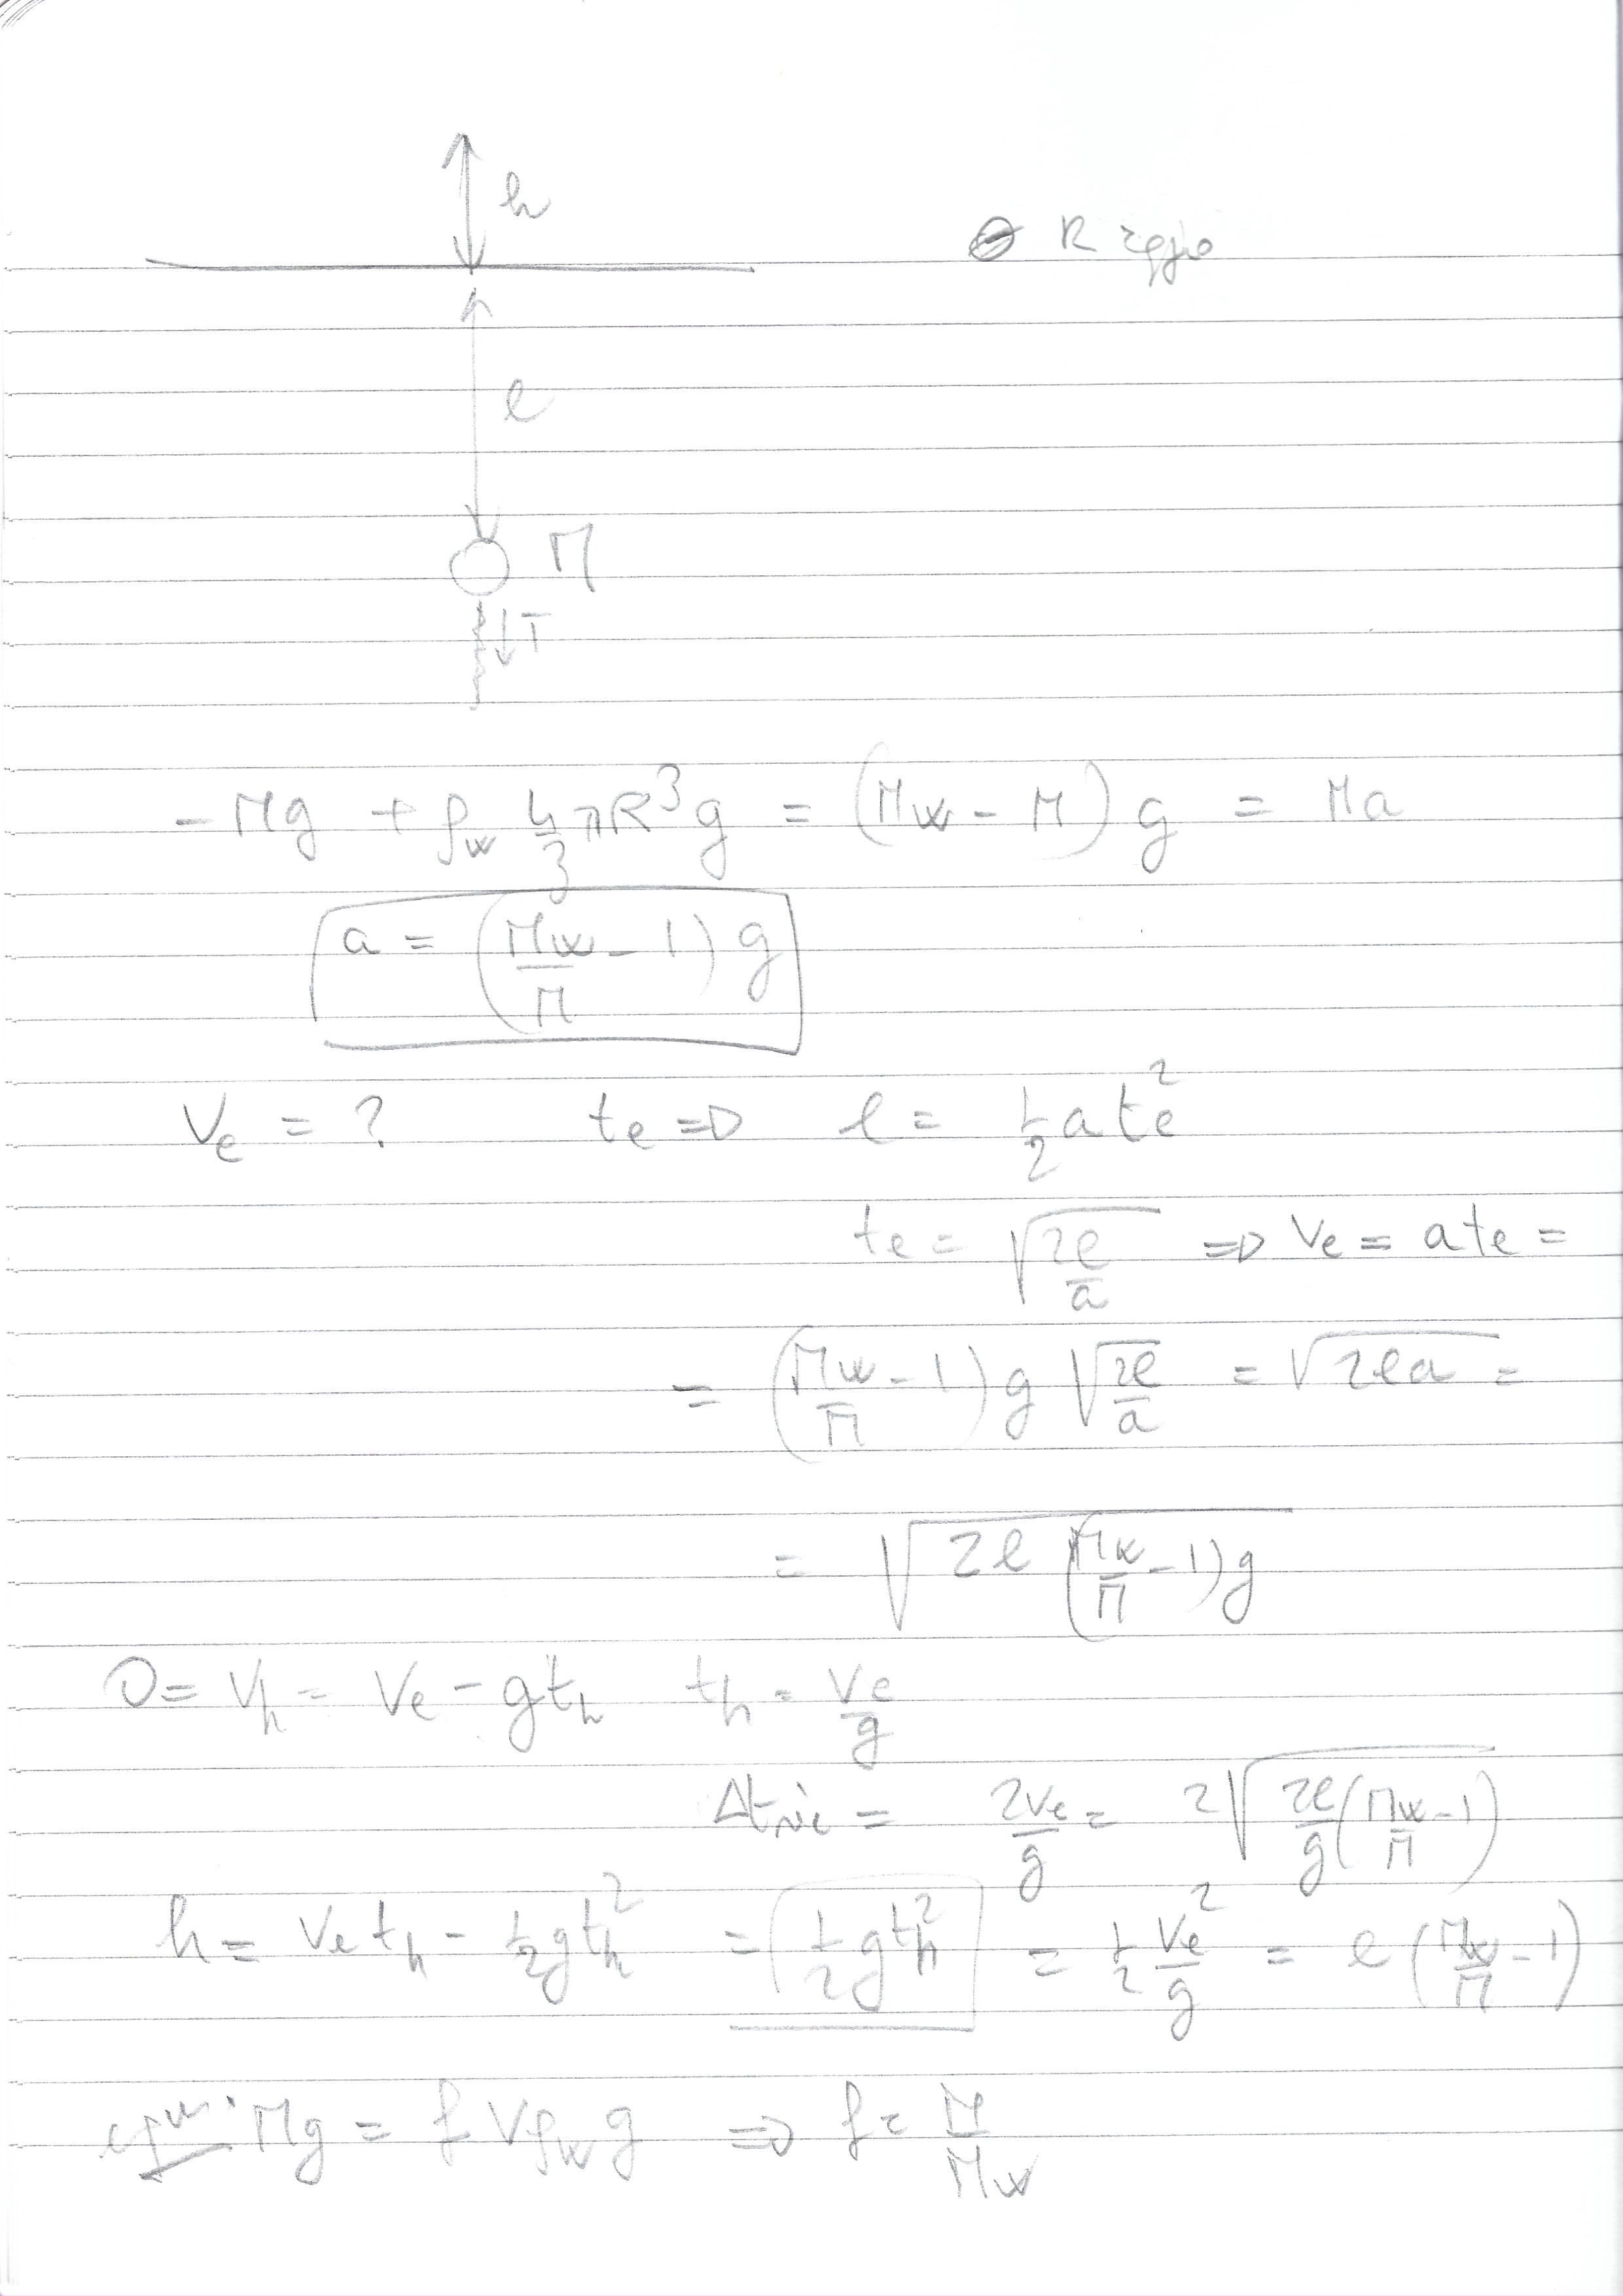 h
R raggio
l
M
T
-Mg + ρw 4/3 πR³g = (Mw - M) g = Ma
a = (Mw/M - 1) g
Ve = ? te => l = 1/2 a te²
te = √(2l/a) => Ve = ate =
= (Mw/M - 1) g √(2l/a) = √(2la) =
= √(2l (Mw/M - 1) g)
0 = Vh = Ve - gth th = Ve/g
Δt = 2Ve/g = 2√(2l/g (Mw/M - 1))
h = Ve th - 1/2 gth² = 1/2 gth² = 1/2 Ve²/g = l (Mw/M - 1)
Mg = f Vρw g => f = M/Mw